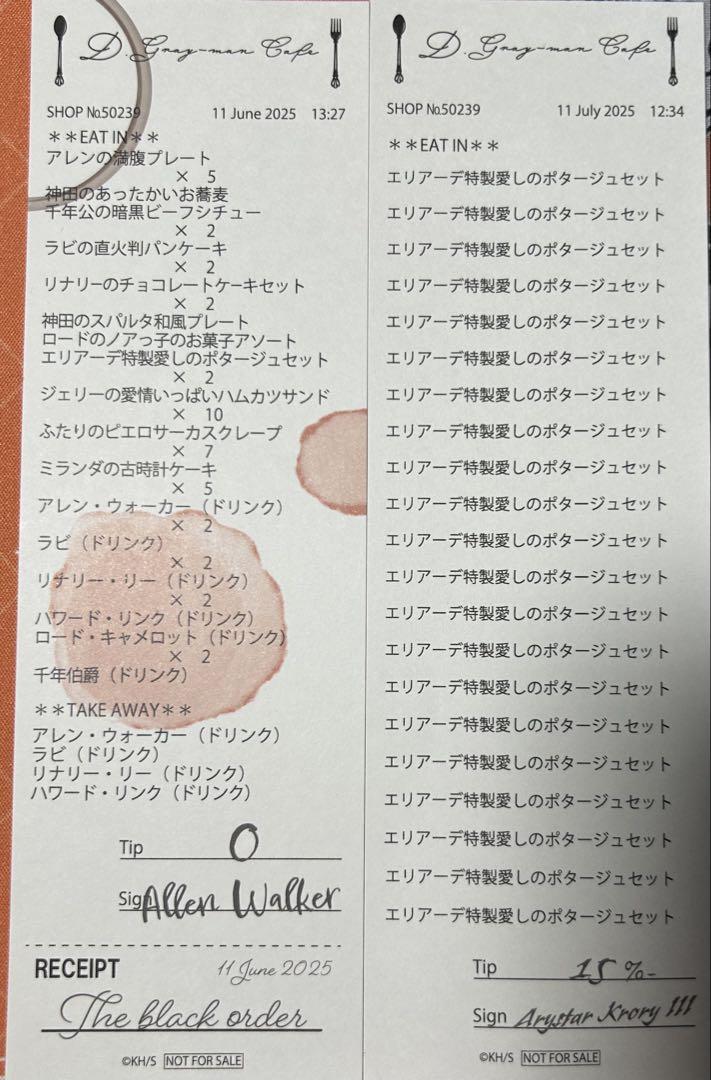 D.Gray-man Cafe
SHOP №50239 11 June 2025 13:27
＊＊EAT IN＊＊
アレンの満腹プレート
× 5
神田のあったかいお蕎麦
千年公の暗黒ビーフシチュー
× 2
ラビの直火判パンケーキ
× 2
リナリーのチョコレートケーキセット
× 2
神田のスパルタ和風プレート
ロードのノアっ子のお菓子アソート
エリアーデ特製愛しのポタージュセット
× 2
ジェリーの愛情いっぱいハムカツサンド
× 10
ふたりのピエロサーカスクレープ
× 7
ミランダの古時計ケーキ
× 5
アレン・ウォーカー（ドリンク）
× 2
ラビ（ドリンク）
× 2
リナリー・リー（ドリンク）
× 2
ハワード・リンク（ドリンク）
ロード・キャメロット（ドリンク）
× 2
千年伯爵（ドリンク）
＊＊TAKE AWAY＊＊
アレン・ウォーカー（ドリンク）
ラビ（ドリンク）
リナリー・リー（ドリンク）
ハワード・リンク（ドリンク）
Tip 0
Sign Allen Walker
RECEIPT 11 June 2025
The black order
©KH/S NOT FOR SALE
D.Gray-man Cafe
SHOP №50239 11 July 2025 12:34
＊＊EAT IN＊＊
エリアーデ特製愛しのポタージュセット
エリアーデ特製愛しのポタージュセット
エリアーデ特製愛しのポタージュセット
エリアーデ特製愛しのポタージュセット
エリアーデ特製愛しのポタージュセット
エリアーデ特製愛しのポタージュセット
エリアーデ特製愛しのポタージュセット
エリアーデ特製愛しのポタージュセット
エリアーデ特製愛しのポタージュセット
エリアーデ特製愛しのポタージュセット
エリアーデ特製愛しのポタージュセット
エリアーデ特製愛しのポタージュセット
エリアーデ特製愛しのポタージュセット
エリアーデ特製愛しのポタージュセット
エリアーデ特製愛しのポタージュセット
エリアーデ特製愛しのポタージュセット
エリアーデ特製愛しのポタージュセット
エリアーデ特製愛しのポタージュセット
エリアーデ特製愛しのポタージュセット
エリアーデ特製愛しのポタージュセット
エリアーデ特製愛しのポタージュセット
Tip 15%-
Sign Arystar Krory III
©KH/S NOT FOR SALE